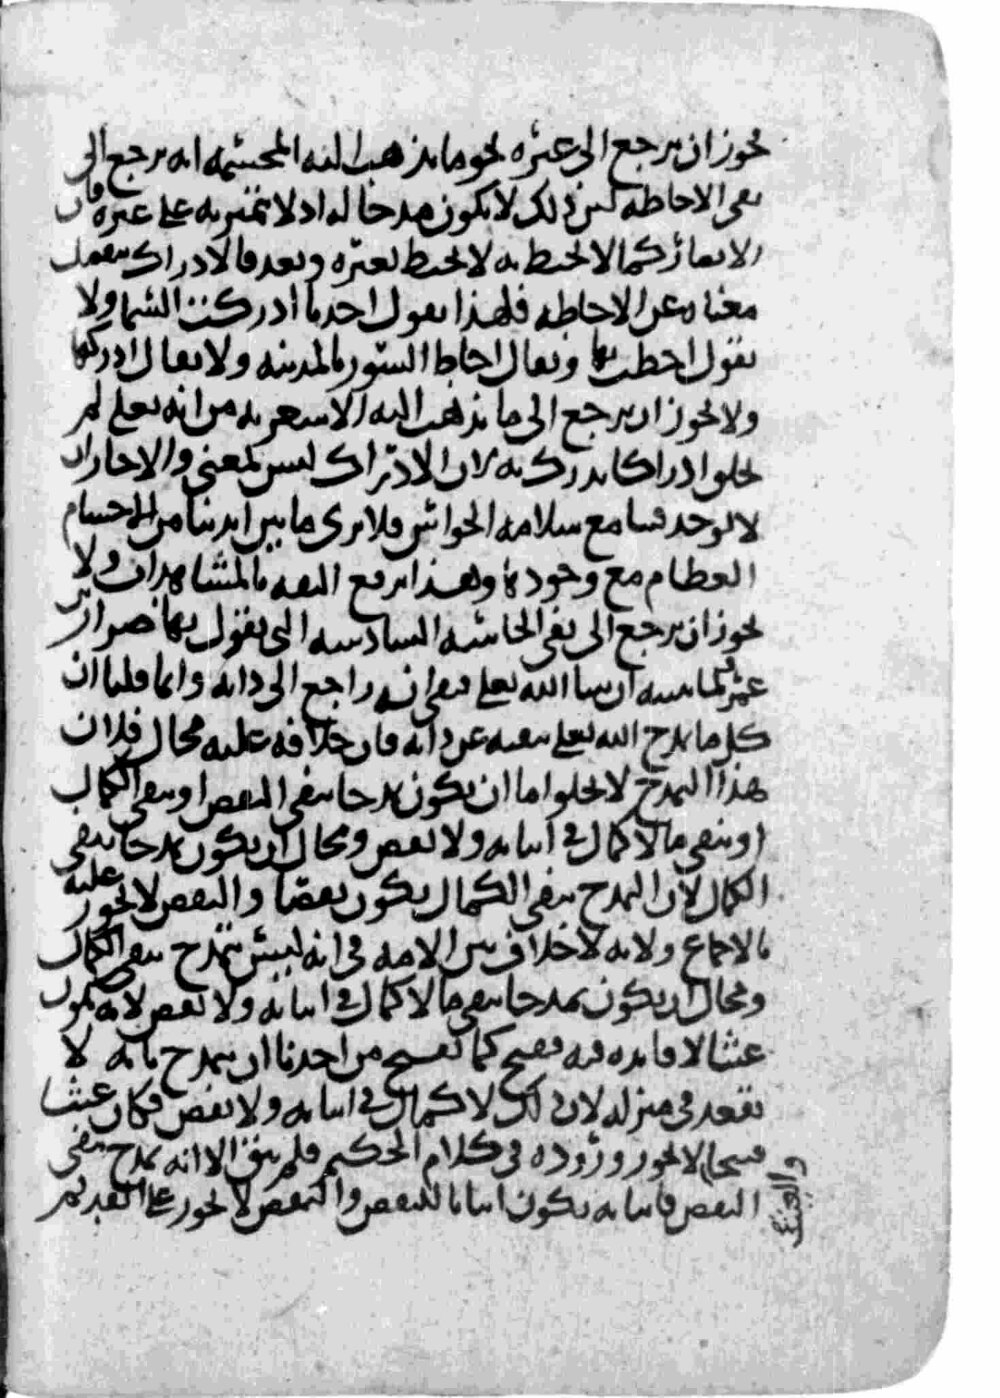 يجوز ان يرجع الى غيره نحو ما يذهب اليه المجسمة انه يرجع الى
نفي الاحاطه لان ذلك لا يكون مدحا له اذ لا تميز به على غيره فان
الابصار كما لا تحيط به لا تحيط بغيره وبعد فالادراك منفصل
معناه عن الاحاطه فلهذا يقول احدنا ادركت السما ولا
يقول احطت بها ويقال احاط السور بالمدينه ولا يقال ادركها
ولا يجوز ان يرجع الى ما يذهب اليه الاشعريه من انه تعلى لم
يخلق ادراكا يدرك به لان الادراك ليس بمعنى والا جاز ان
لا يوجد فينا مع سلامه الحواس فلا نرى ما بين ايدينا من الاجسام
العظام مع وجودها وهذا يرفع الثقه بالمشاهدات ولا
يجوز ان يرجع الى نفي الحاسه السادسه التي يقول بها ضرار بن
عمرو لما نبينه ان شا الله تعلى فبقي انه راجع الى ذاته وانما قلنا ان
كل ما تمدح الله تعلى بنفيه عن ذاته فان خلافه عليه محال فلان
هذا التمدح لا يخلوا اما ان يكون مدحا بنفي النقص او بنفي الكمال
او بنفي ما لا كمال في اثباته ولا نقص ومحال ان يكون مدحا بنفي
الكمال لان التمدح بنفي الكمال يكون نقصا والنقص لا يجوز عليه
بالاجماع ولانه لا خلاف بين الامه في انه ليس بتمدح بنفي الكمال
ومحال ان يكون تمدحا بنفي ما لا كمال في اثباته ولا نقص لانه يكون
عبثا لا فايده فيه فقبيح كما يقبح من احدنا ان يتمدح بانه لا
يقعد في منزله لان ذلك لا كمال في اثباته ولا نقص فكان عبثا
قبيحا لا يجوز وروده في كلام الحكيم فلم يبق الا انه تمدح بنفي
النقص فاثباته يكون اثباتا للنقص والنقص لا يجوز على القديم